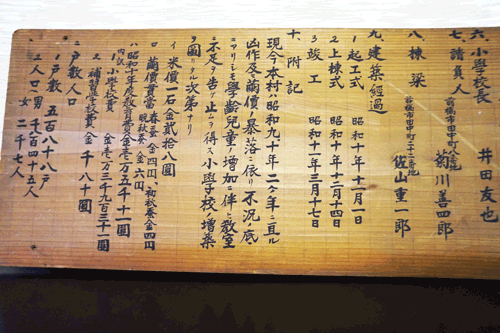 六、小學校長 井田友也
七、請負人 前橋市田中町八番地 菊川善四郎
八、棟梁 前橋市田中町二十二番地 佐山重一郎
九、建築經過
1 起工式 昭和十年十二月一日
2 上棟式 昭和十年十二月十四日
3 竣工 昭和十一年三月十七日
十、附記
現今本村ハ昭和九十年二ケ年ニ亘ル
凶作及繭價ノ暴落ニ依リ不況ノ底
ニアリシモ學齡兒童ノ増加ニ伴ヒ教室
ニ不足ヲ告ゲ止ムヲ得ズ小學校ノ増築
ヲ圖リタル次第ナリ
イ 米價一石金貳拾八圓
ロ 繭價貫當 春蚕金四円、初秋蚕金四円
晩秋蚕金六円
ハ 昭和十年度教育費金壱万五千十一圓
内訳 1 小學校費 金壱万三千九百三十一圓
2 補習學校費 金千八十圓
ニ 戸數人口
1 戸數 五百八十八戸
2 人口 男 千八百四十五人
女 二千七人